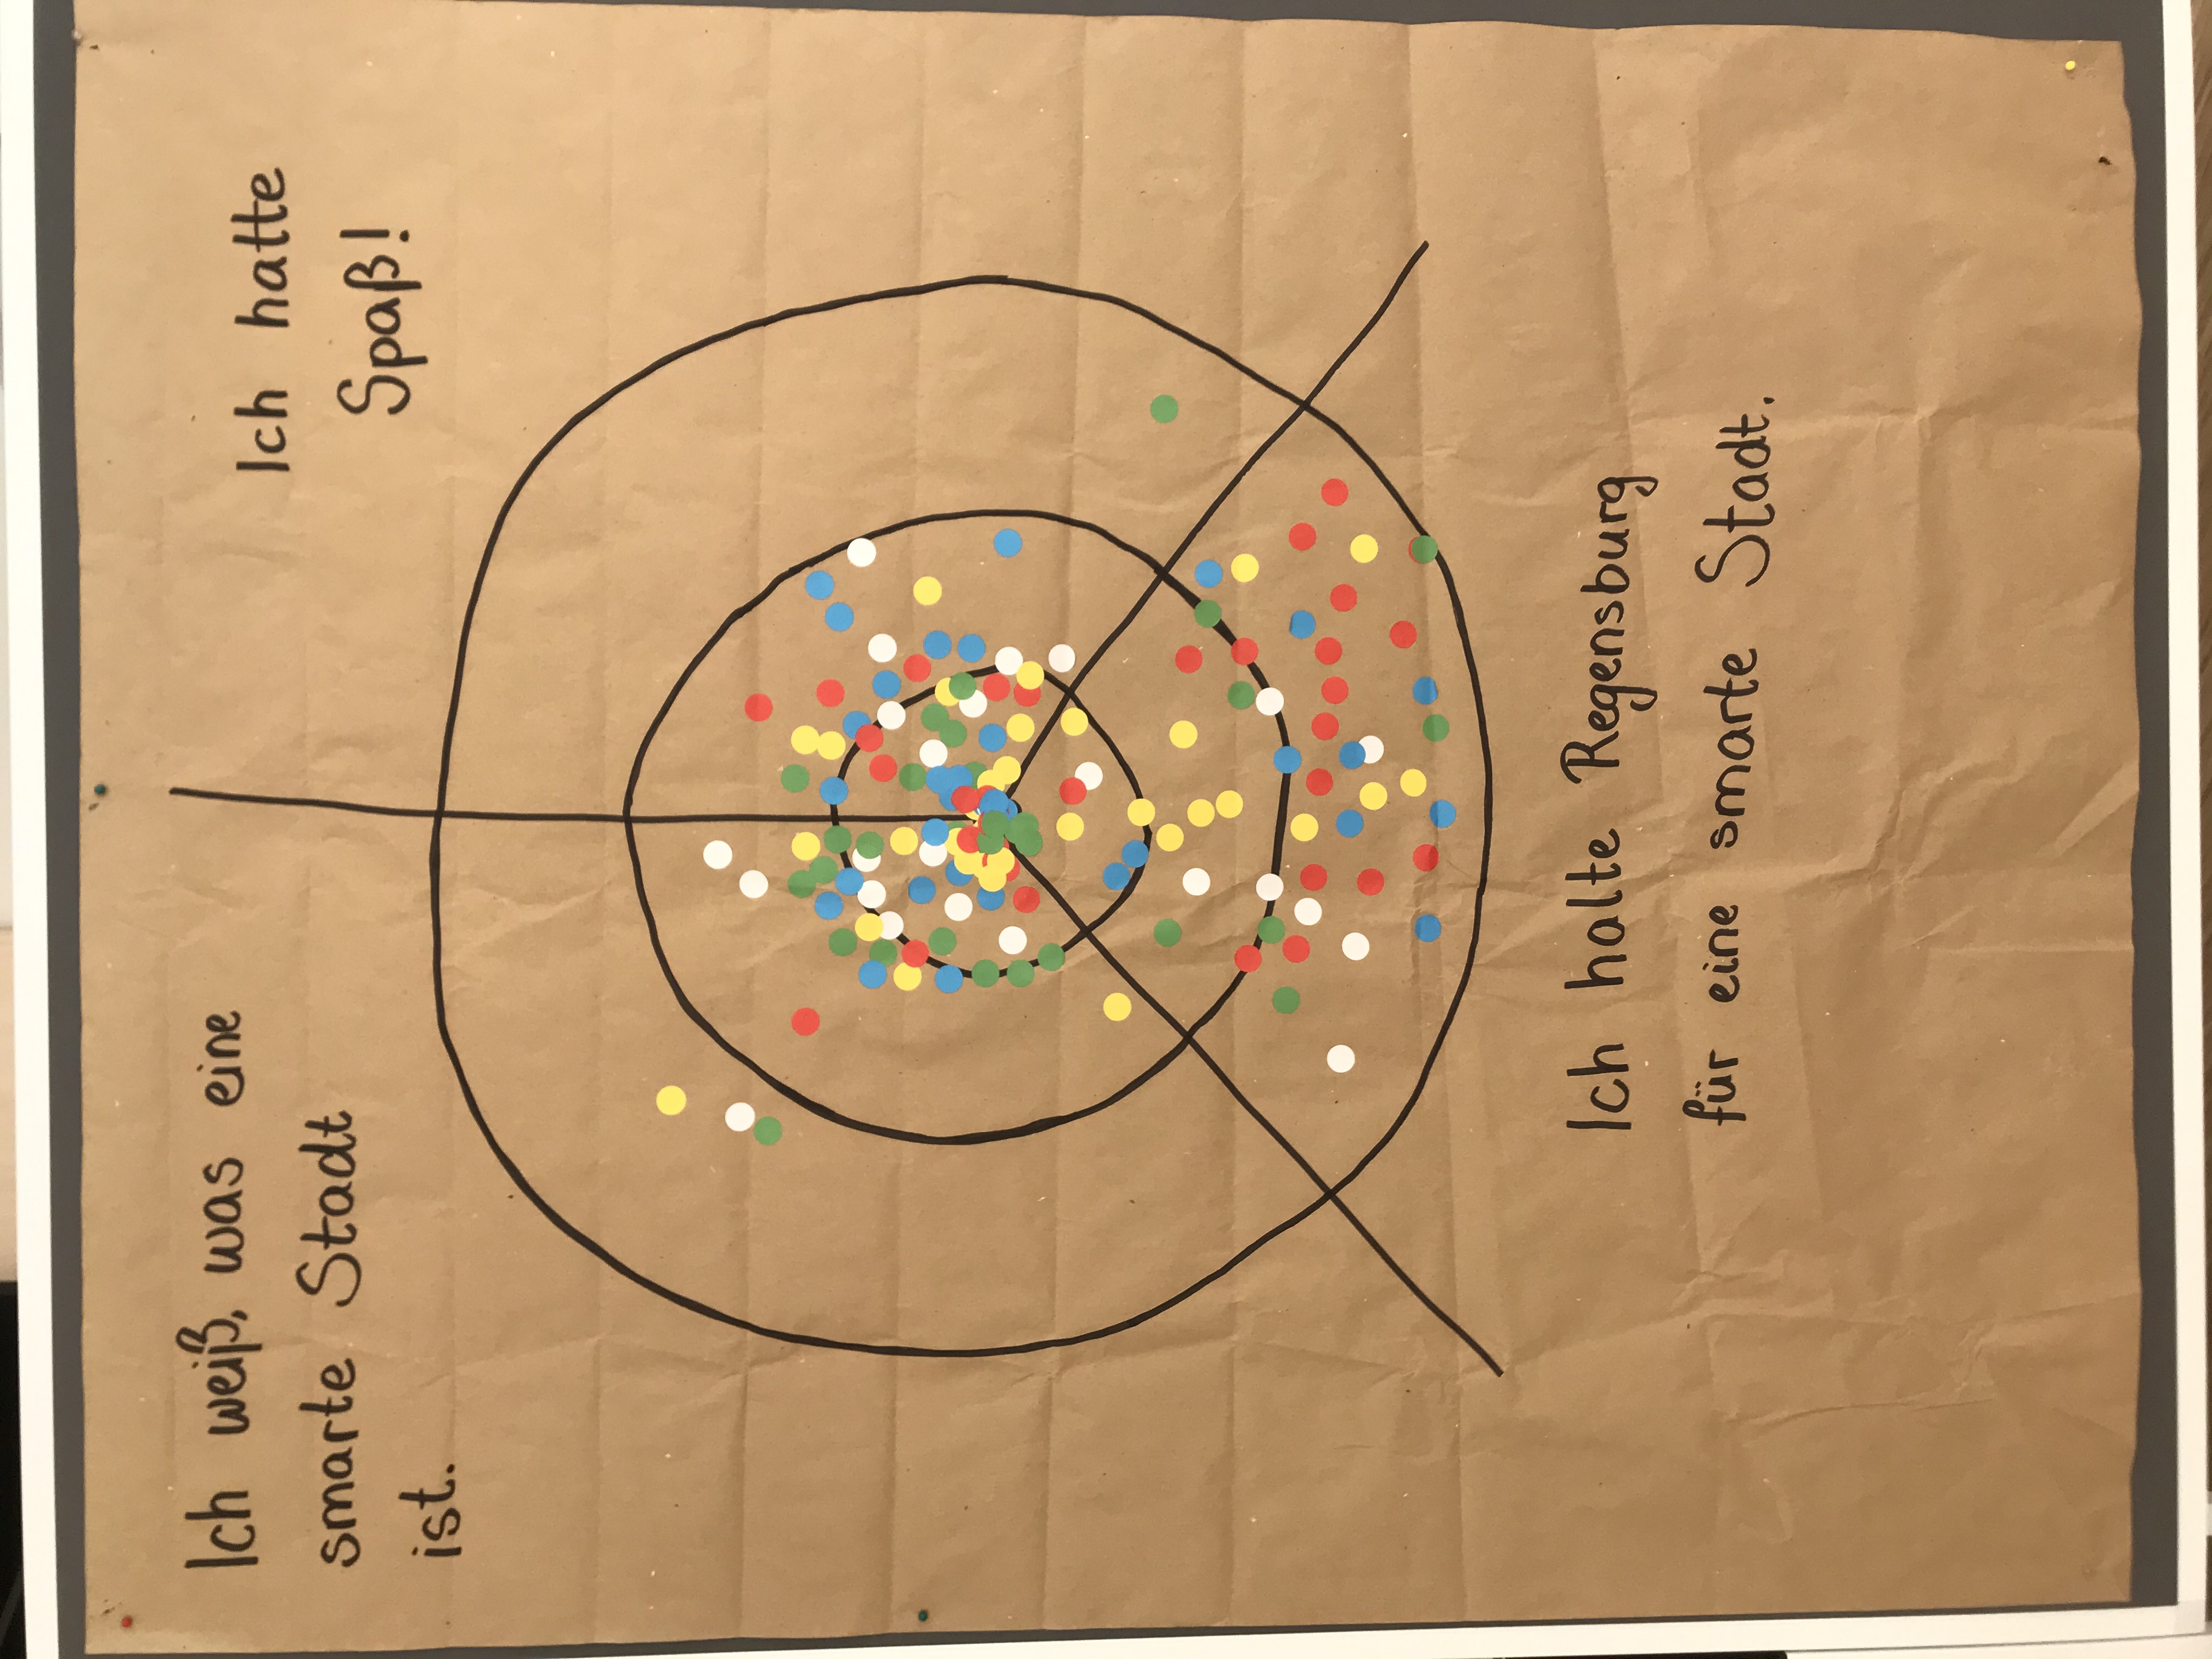 Ich weiß, was eine
smarte Stadt
ist.
Ich hatte
Spaß!
Ich halte Regensburg
für eine smarte Stadt.